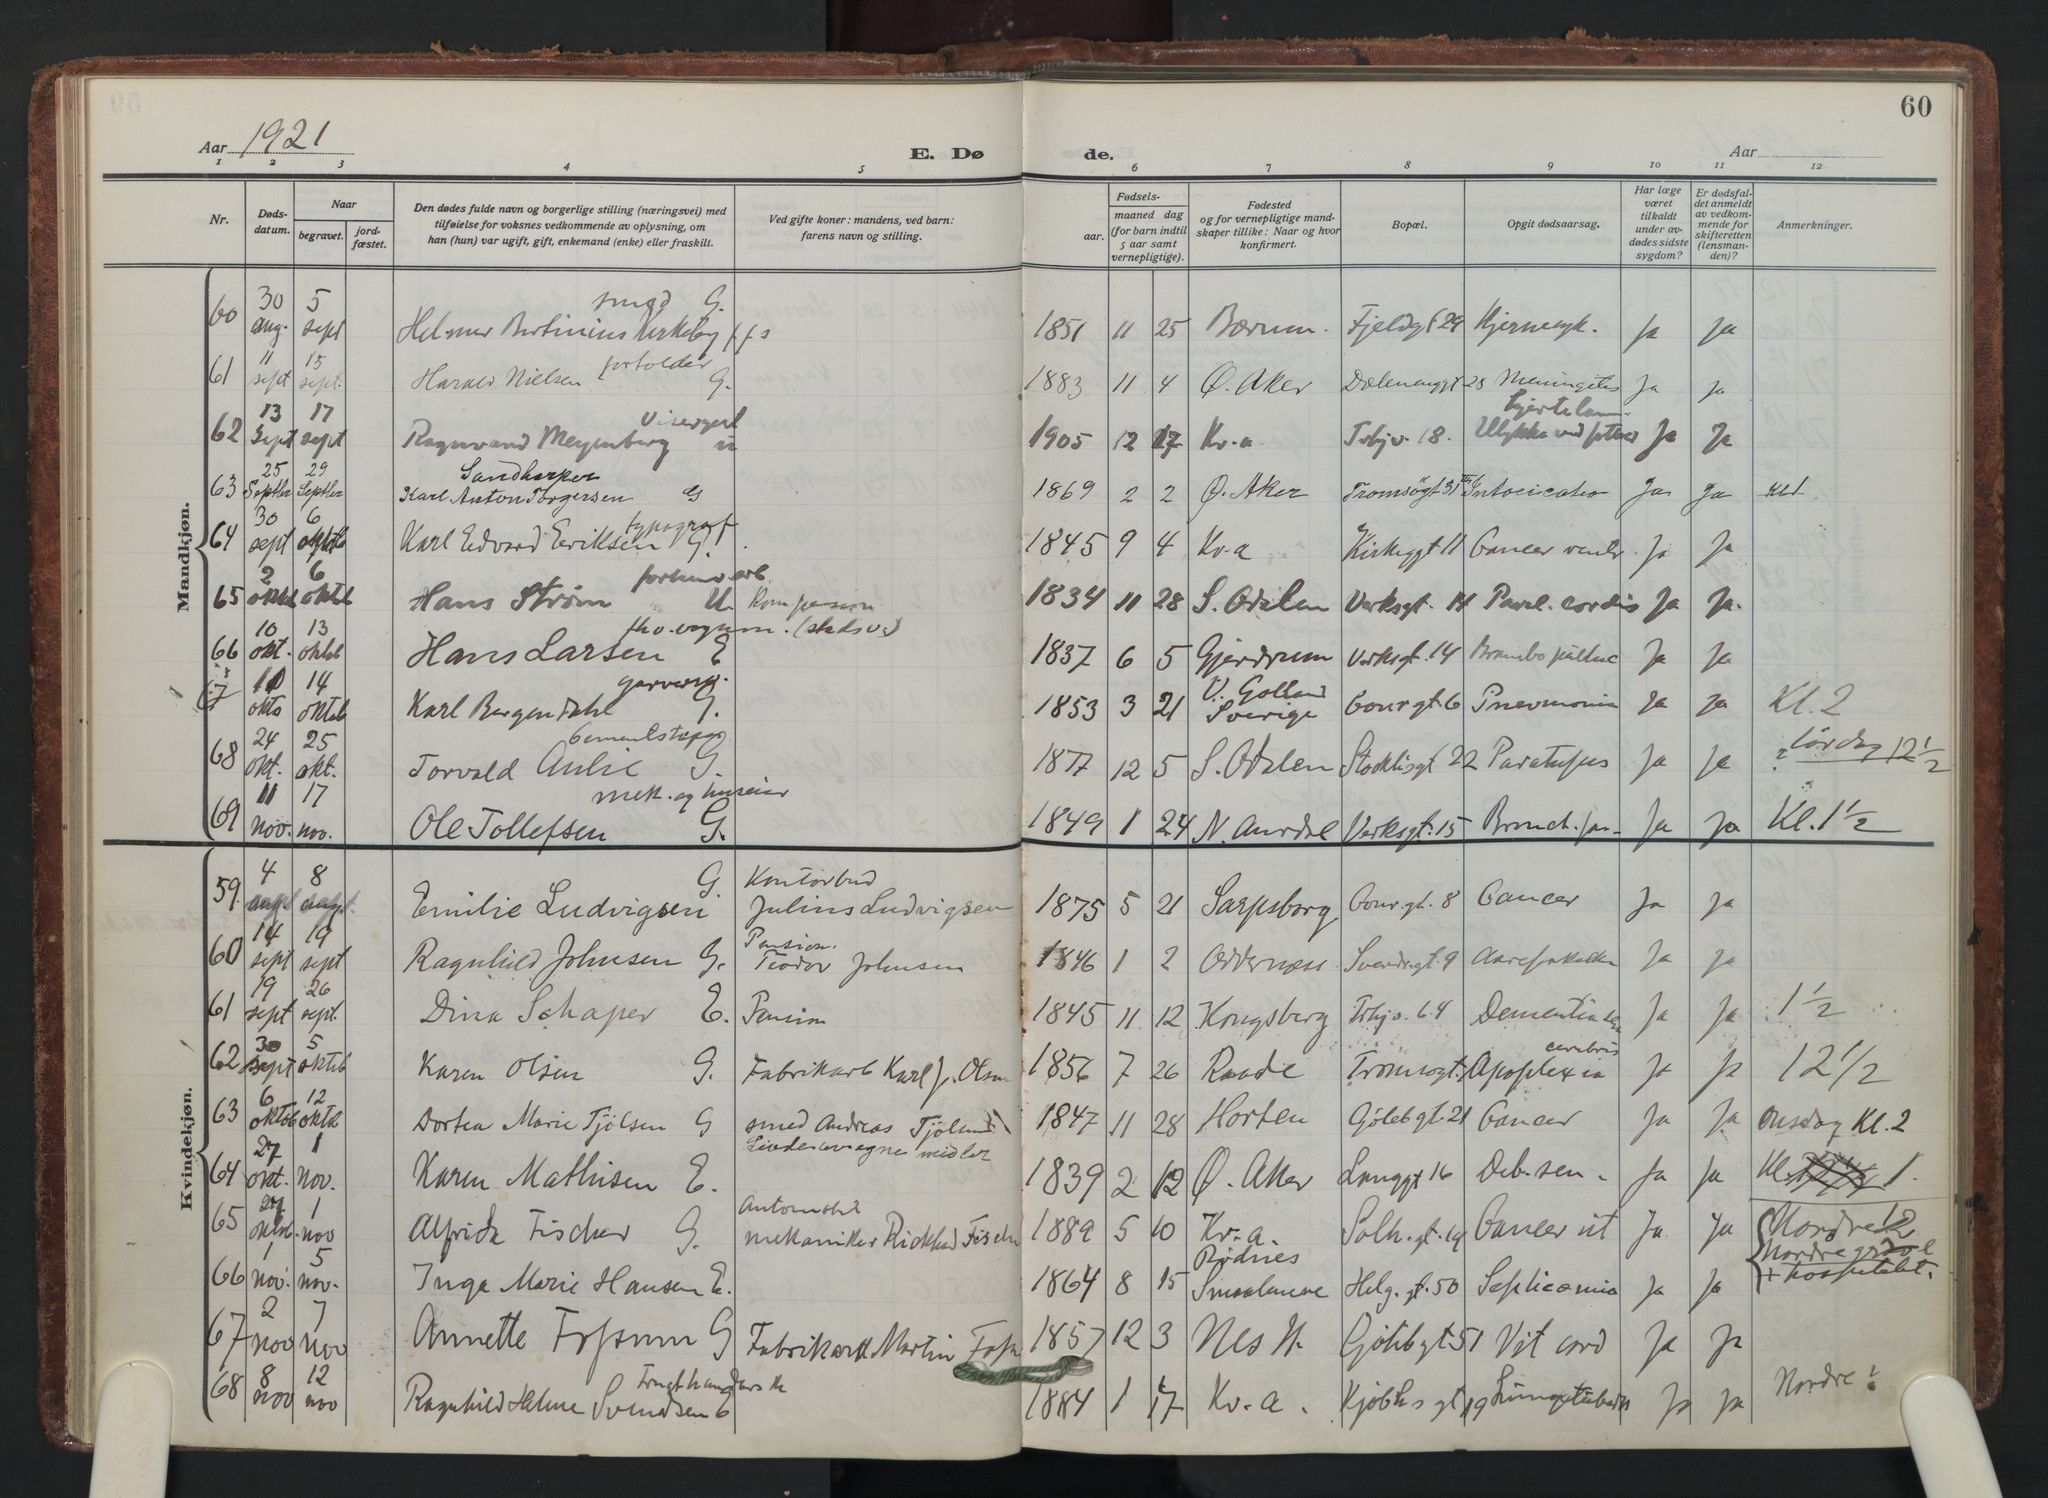 60
Aar 1921
E. Dø
de.
Aar
1 2 3 4 5 6 7 8 9 10 11 12
Nr.
Døds-
datum.
Naar
begravet.
jord-
fæstet.
Den dødes fulde navn og borgerlige stilling (næringsvei) med
tilføielse for voksnes vedkommende av oplysning, om
han (hun) var ugift, gift, enkemand (enke) eller fraskilt.
Ved gifte koner: mandens, ved barn:
farens navn og stilling.
Fødsels-
aar.
maaned dag
(for barn indtil
5 aar samt
vernepligtige).
Fødested
og for vernepligtige mand-
skaper tillike: Naar og hvor
konfirmert.
Bopæl.
Opgit dødsaarsag.
Har læge
været
tilkaldt
under av-
dødes sidste
sygdom?
Er dødsfal-
det anmeldt
av vedkom-
mende for
skifteretten
(lensman-
den)?
Anmerkninger.
Mandkjøn.
60 30 aug. 5 sept smed G.
Helmer Bertinius Kirkeby 1851 11 25 Bærum. Fjeldgt 29 Hjernesyk. Ja Ja
61 11 sept 15 sept. Harald Nielsen G. 1883 11 4 Ø. Aker Dælenenggt 25 Meningitis Ja Ja
62 13 sept 17 sept Visergut
Ragnvand Meyenberg u 1905 12 17 Kv.a Trhjv. 18. Ulykke ved Ja Ja
63 25 Septbr 29 Septbr
Karl Anton Torgersen G 1869 2 2 Ø. Aker Tromsögt 31 Intocicatio Ja Ja
64 30 sept 6 oktb typograf
Karl Edvard Eriksen G. 1845 9 4 Kv.a Kirkeggt 11 Cancer ventr. Ja Ja
65 2 oktb 6 oktb forhenv. arb.
Hans Strøm U. kom pension 1834 11 28 S. Odalen Verksgt. 14 Paral. cordis Ja Ja.
66 10 okt. 13 oktb fhv. vognm. (stadsv.)
Hans Larsen E 1837 6 5 Gjerdrum Verksgt. 14 Ja Ja
67 10 okto 14 oktob
Karl Bergendahl G. 1853 3 21 V. Gotland Sverige Gourgt. 6 Pnevmonia Ja Ja Kl. 2
68 24 okt. 25 okt.
Torvald Aulie G. 1877 12 5 S. Odalen 22 Paratyfus Ja Ja lördag 12 1/2
69 11 nov. 17 nov. mek. og huseier
Ole Tollefsen G. 1849 1 24 N. Aurdal Verksgt. 15 Ja Ja Kl. 1 1/2
Kvindekjøn.
59. 4 augt 8 augt. G. Kontorbud
Emilie Ludvigsen Julius Ludvigsen 1875 5 21 Sarpsborg Gour.gt. 8 Cancer Ja Ja
60 14 sept 19 sept Pension.
Ragnhild Johnsen G. Teodor Johnsen 1846 1 2 Oddernæss Sverdr.gt. 9 Aareforkalkn Ja Ja
61 19 sept 26 sept. Dina Schaper E. Pension 1845 11 12 Kongsberg Trhjv. 64 Dementia sen Ja Ja 1 1/2
62 30 sept 5 oktob Karen Olsen G. Fabrikarb Karl J. Olsen 1856 7 26 Raade Tromsøgt. Apoplexia cerebris Ja Ja 12 1/2
63 6 oktob 12 oktb Dortea Marie Tjölsen G smed Andreas 1847 11 28 Horten Göteb gt. 21 Cancer Ja Ja onsdag Kl. 2
64 27 okt. 1 nov. Lever av egne midler
Karen Mathisen E. 1839 2 12 Ø. Aker Langgt 16 Deb. sen. Ja Ja Kl. 1.
65 27 oktb. 1 nov Automobil
Alfrida Fischer G. mekaniker Rickhard Fischer 1889 5 10 Kr.a. Solh. gt. 19 Cancer ut Ja Ja Nordre 12
66 1 nov. 5 nov. Inga Marie Hansen E. 1864 8 15 Rødnes Smaalenene Helg. gt. 50 Septicæmia Ja Ja Nordre grav
+ hospitalet.
67 2 nov 7 nov Annette Fossum G Fabrikarb Martin Foss 1857 12 3 Nes H. Götebgt 51 Vit cord Ja Ja
68 8 nov 12 nov
Ragnhild Helene Svendsen E 1884 1 17 Kr.a. Kjøbhs gt 19 Lungetuberk Ja Ja Nordre 1